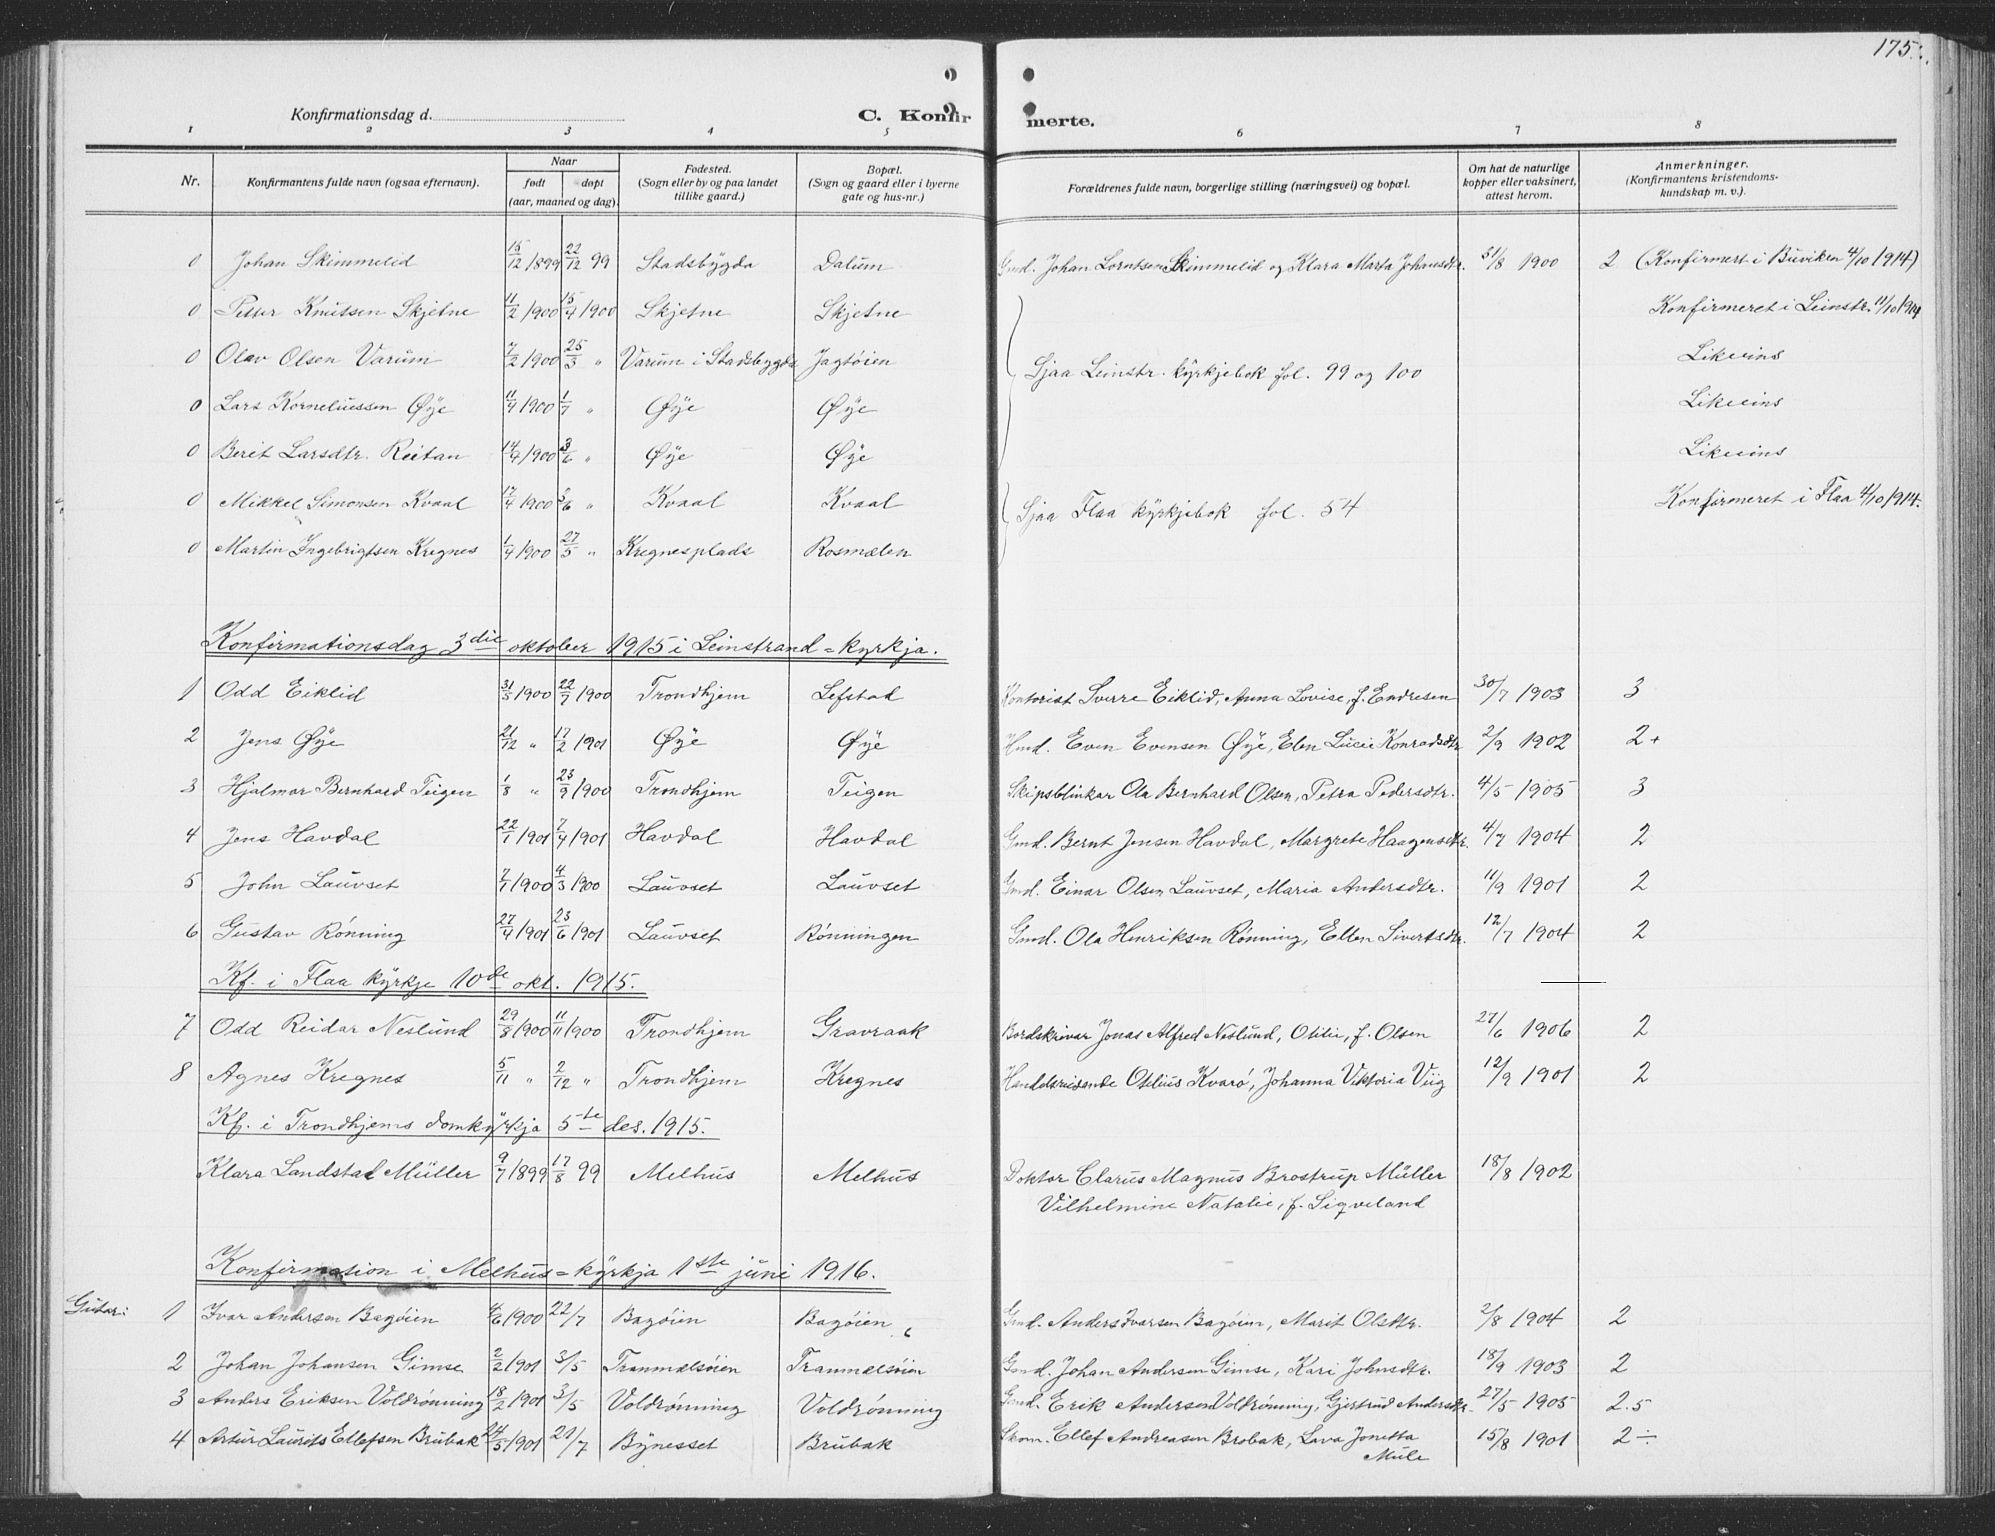 175.
Konfirmationsdag d. C. Konfirmerte.
1 2 3 4 5 6 7 8
Nr. Konfirmantens fulde navn (ogsaa efternavn). Naar født døpt (aar, maaned og dag). Fødested. (Sogn eller by og paa landet tillike gaard.) Bopæl. (Sogn og gaard eller i byerne gate og hus-nr.) Forældrenes fulde navn, borgerlige stilling (næringsvei) og bopæl. Om hat de naturlige kopper eller vaksinert, attest herom. Anmerkninger. (Konfirmantens kristendoms-kundskap m. v.).
0 Johan Skimmelid 15/12 1899 22/12 99 Stadsbygda Dalum Gmd. Johan Lorntsen Skimmelid og Klara Marta Johansdtr. 31/8 1900 2 (Konfirmert i Buviken 4/10 1914)
0 Petter Knutsen Skjetne 11/2 1900 15/4 1900 Skjetne Skjetne Konfirmeret i Leinstr. 11/10 1914
0 Olav Olsen Varum 7/2 1900 25/3 " Varum i Stadsbygda Jagtöien Sjaa Leinstr. kyrkjebok fol. 99 og 100 Likeeins
0 Lars Korneliussen Øye 11/4 1900 1/7 " Øye Øye Likeeins
0 Berit Larsdtr. Reitan 14/4 1900 3/6 " Øye Øye Likeeins
0 Mikkel Simonsen Kvaal 17/4 1900 3/6 " Kvaal Kvaal Sjaa Flaa kyrkjebok fol. 54 Konfirmeret i Flaa 4/10 1914.
0 Martin Ingebrigtsen Kregnes 1/4 1900 27/5 " Kregnesplads Rosmælen
Konfirmationsdag 3die oktober 1915 i Leinstrand=kyrkja.
1 Odd Eiklid 31/5 1900 22/7 1900 Trondhjem Lefstad Kontorist Sverre Eiklid, Anna Lovise, f. Endresen 30/7 1903 3
2 Jens Øye 21/12 " 17/2 1901 Øye Øye Hmd. Even Evensen Øye, Elen Lucie Konradsdtr 2/9 1902 2+
3 Hjalmar Bernhard Teigen 1/8 " 23/9 1900 Trondhjem Teigen Skipsblinkar Ola Bernhard Olsen, Petra Pedersdtr. 4/5 1905 3
4 Jens Havdal 22/1 1901 7/4 1901 Havdal Havdal Gmd. Bernt Jensen Havdal, Margrete Haagensdtr. 4/7 1904 2
5 John Lauvset 7/1 1900 4/3 1900 Lauvset Lauvset Gmd. Einar Olsen Lauvset, Maria Andersdtr. 11/9 1901 2
6 Gustav Rönning 27/4 1901 23/6 1901 Lauvset Rönningen Gmd. Ola Henriksen Rønning, Ellen Sivertsdtr. 12/7 1904 2
Kf. i Flaa kyrkje 10de okt. 1915.
7 Odd Reidar Neslund 29/8 1900 11/11 1900 Trondhjem Gravraak Bordskrivar Jonas Alfred Neslund, Otilie, f. Olsen 27/6 1906 2
8 Agnes Kregnes 5/11 " 2/12 " Trondhjem Kregnes Handelsreisande Otelius Kvarö, Johanna Viktoria Viig 12/9 1901 2
Kf. i Trondhjems domkyrkja 5te des. 1915.
Klara Landstad Müller 9/7 1899 17/8 99 Melhus Melhus Doktor Clarus Magnus Brostrup Müller 18/8 1902
Vilhelmine Natalie, f. Siqveland
Konfirmation i Melhus=kyrkja 1ste juni 1916.
Gutar: 1 Ivar Andersen Bagöien 4/6 1900 22/7 Bagöien Bagöien Gmd. Anders Ivarsen Bagöien, Marit Olsdtr. 2/8 1904 2
2 Johan Johansen Gimse 2/2 1901 3/5 Tranmælsöien Tranmælsöien Gmd. Johan Andersen Gimse, Kari Johnsdtr. 18/9 1903 2
3 Anders Eriksen Voldrönning 18/2 1901 3/5 Voldrönning Voldrönning Gmd. Erik Andersen Voldrönning, Gjertrud Andersdtr. 27/5 1905 2.5
4 Artur Laurits Ellefsen Brubak 24/5 1901 21/7 Bynesset Brubak Skom. Ellef Andreasen Brobak, Lava Jonetta 15/8 1901 2÷
Mule